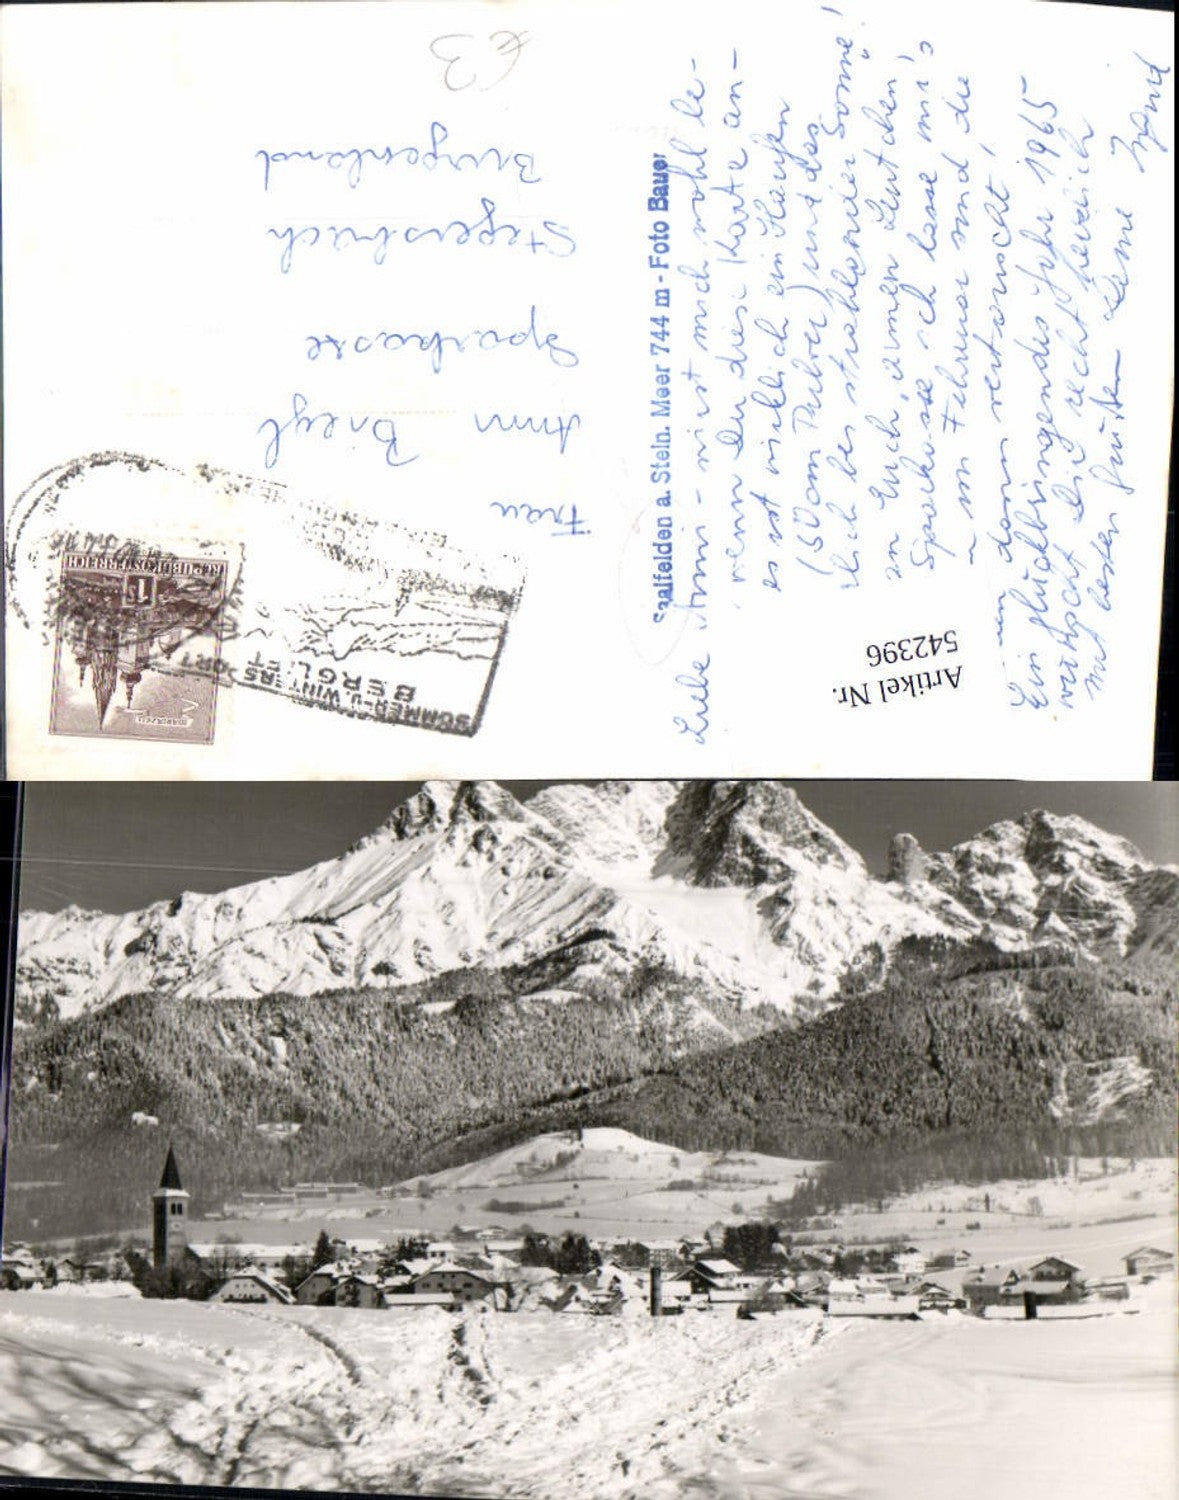 €3
Frau
Anni
Sparkasse
Stegersbach
Burgenland
REPUBLIK ÖSTERREICH
1 S
MARIAZELL
SOMMER- U. WINTERSPORT
BERGLIFT
Saalfelden a. Stein. Meer 744 m - Foto Bauer
Artikel Nr.
542396
Liebe Anni - wirst mich wohl be-
wenn Du diese Karte an-
es ist wirklich ein Haufen
(50 cm Pulver) und das
bei strahlender Sonne!
in Euch, armen Leutchen,
Sparkasse ich lasse mir's
im Februar sind die
dann vertauscht!
Ein glückbringendes Jahr 1965
wünscht Dir recht herzlich
mit besten Grüßen Deine